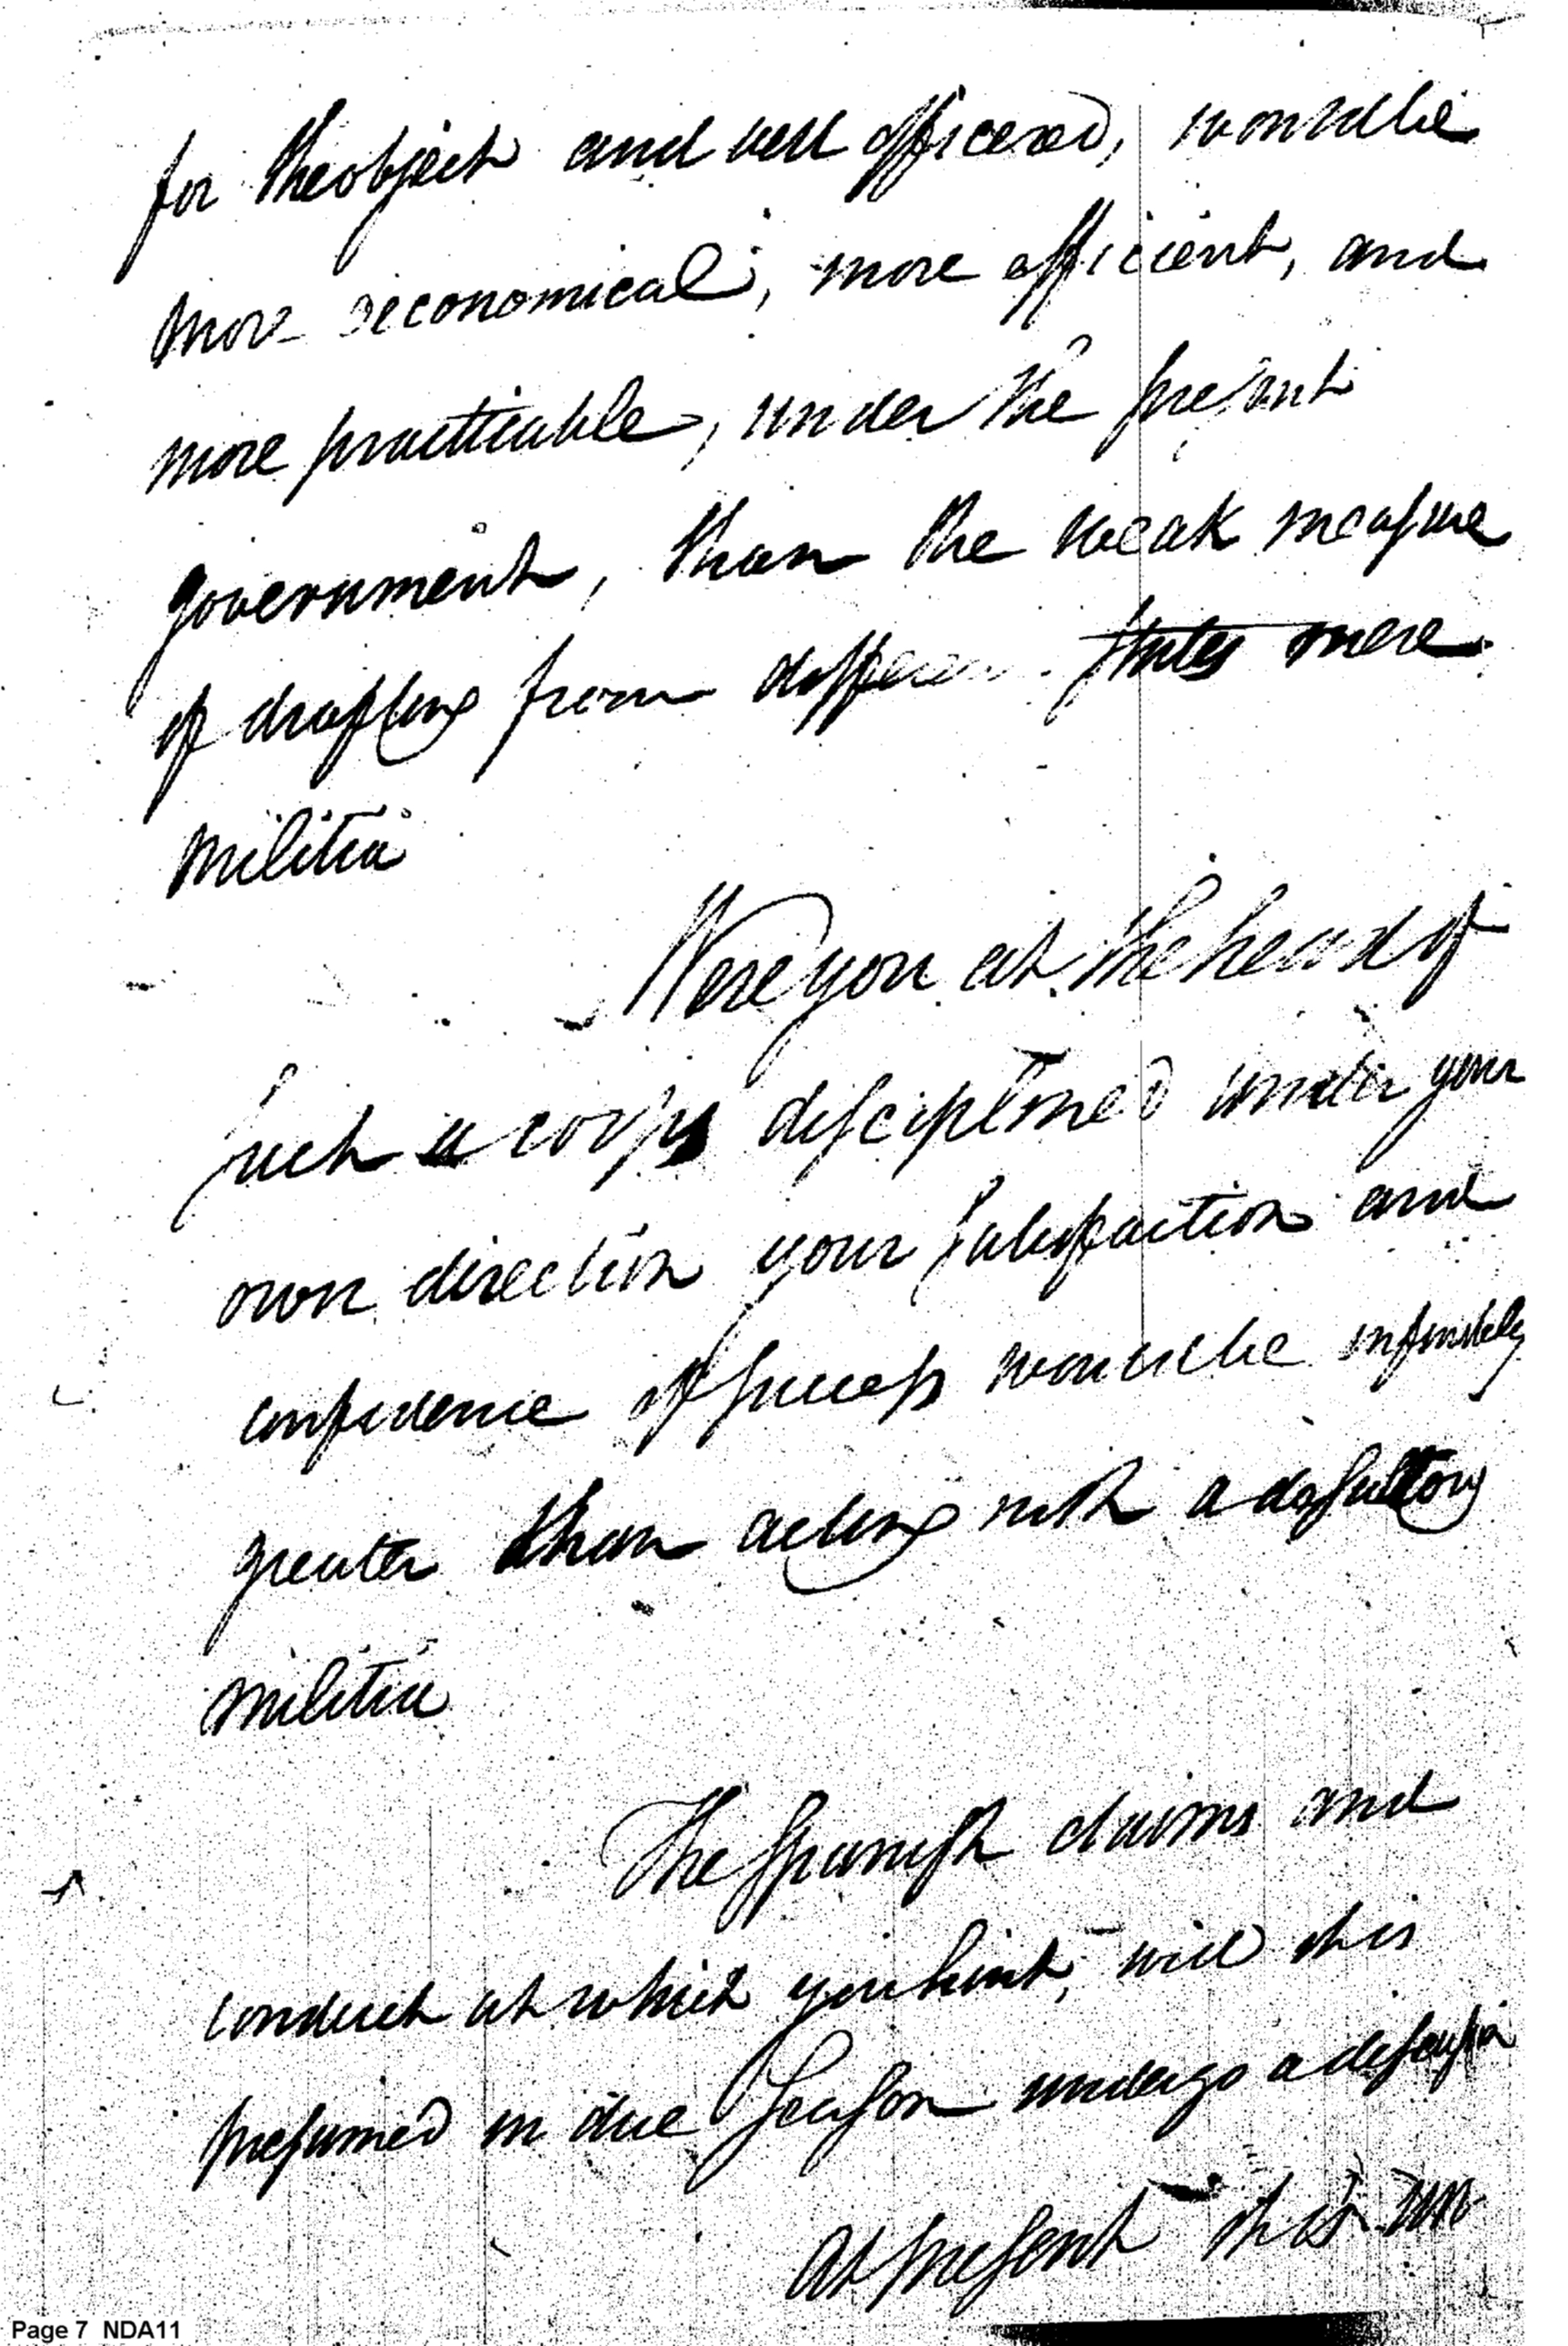 for the object and well officered, would be
more œconomical, more efficient, and
more practicable, under the present
government, than the weak measure
of drafting from different states mere
militia
Were you at the head of
such a corps disciplined under your
own direction your satisfaction and
confidence of success would be infinitely
greater than acting with a desultory
militia
The Spanish claims and
conduct at which you hint, will it is
presumed in due season undergo a discussion
at present it is
Page 7 NDA11